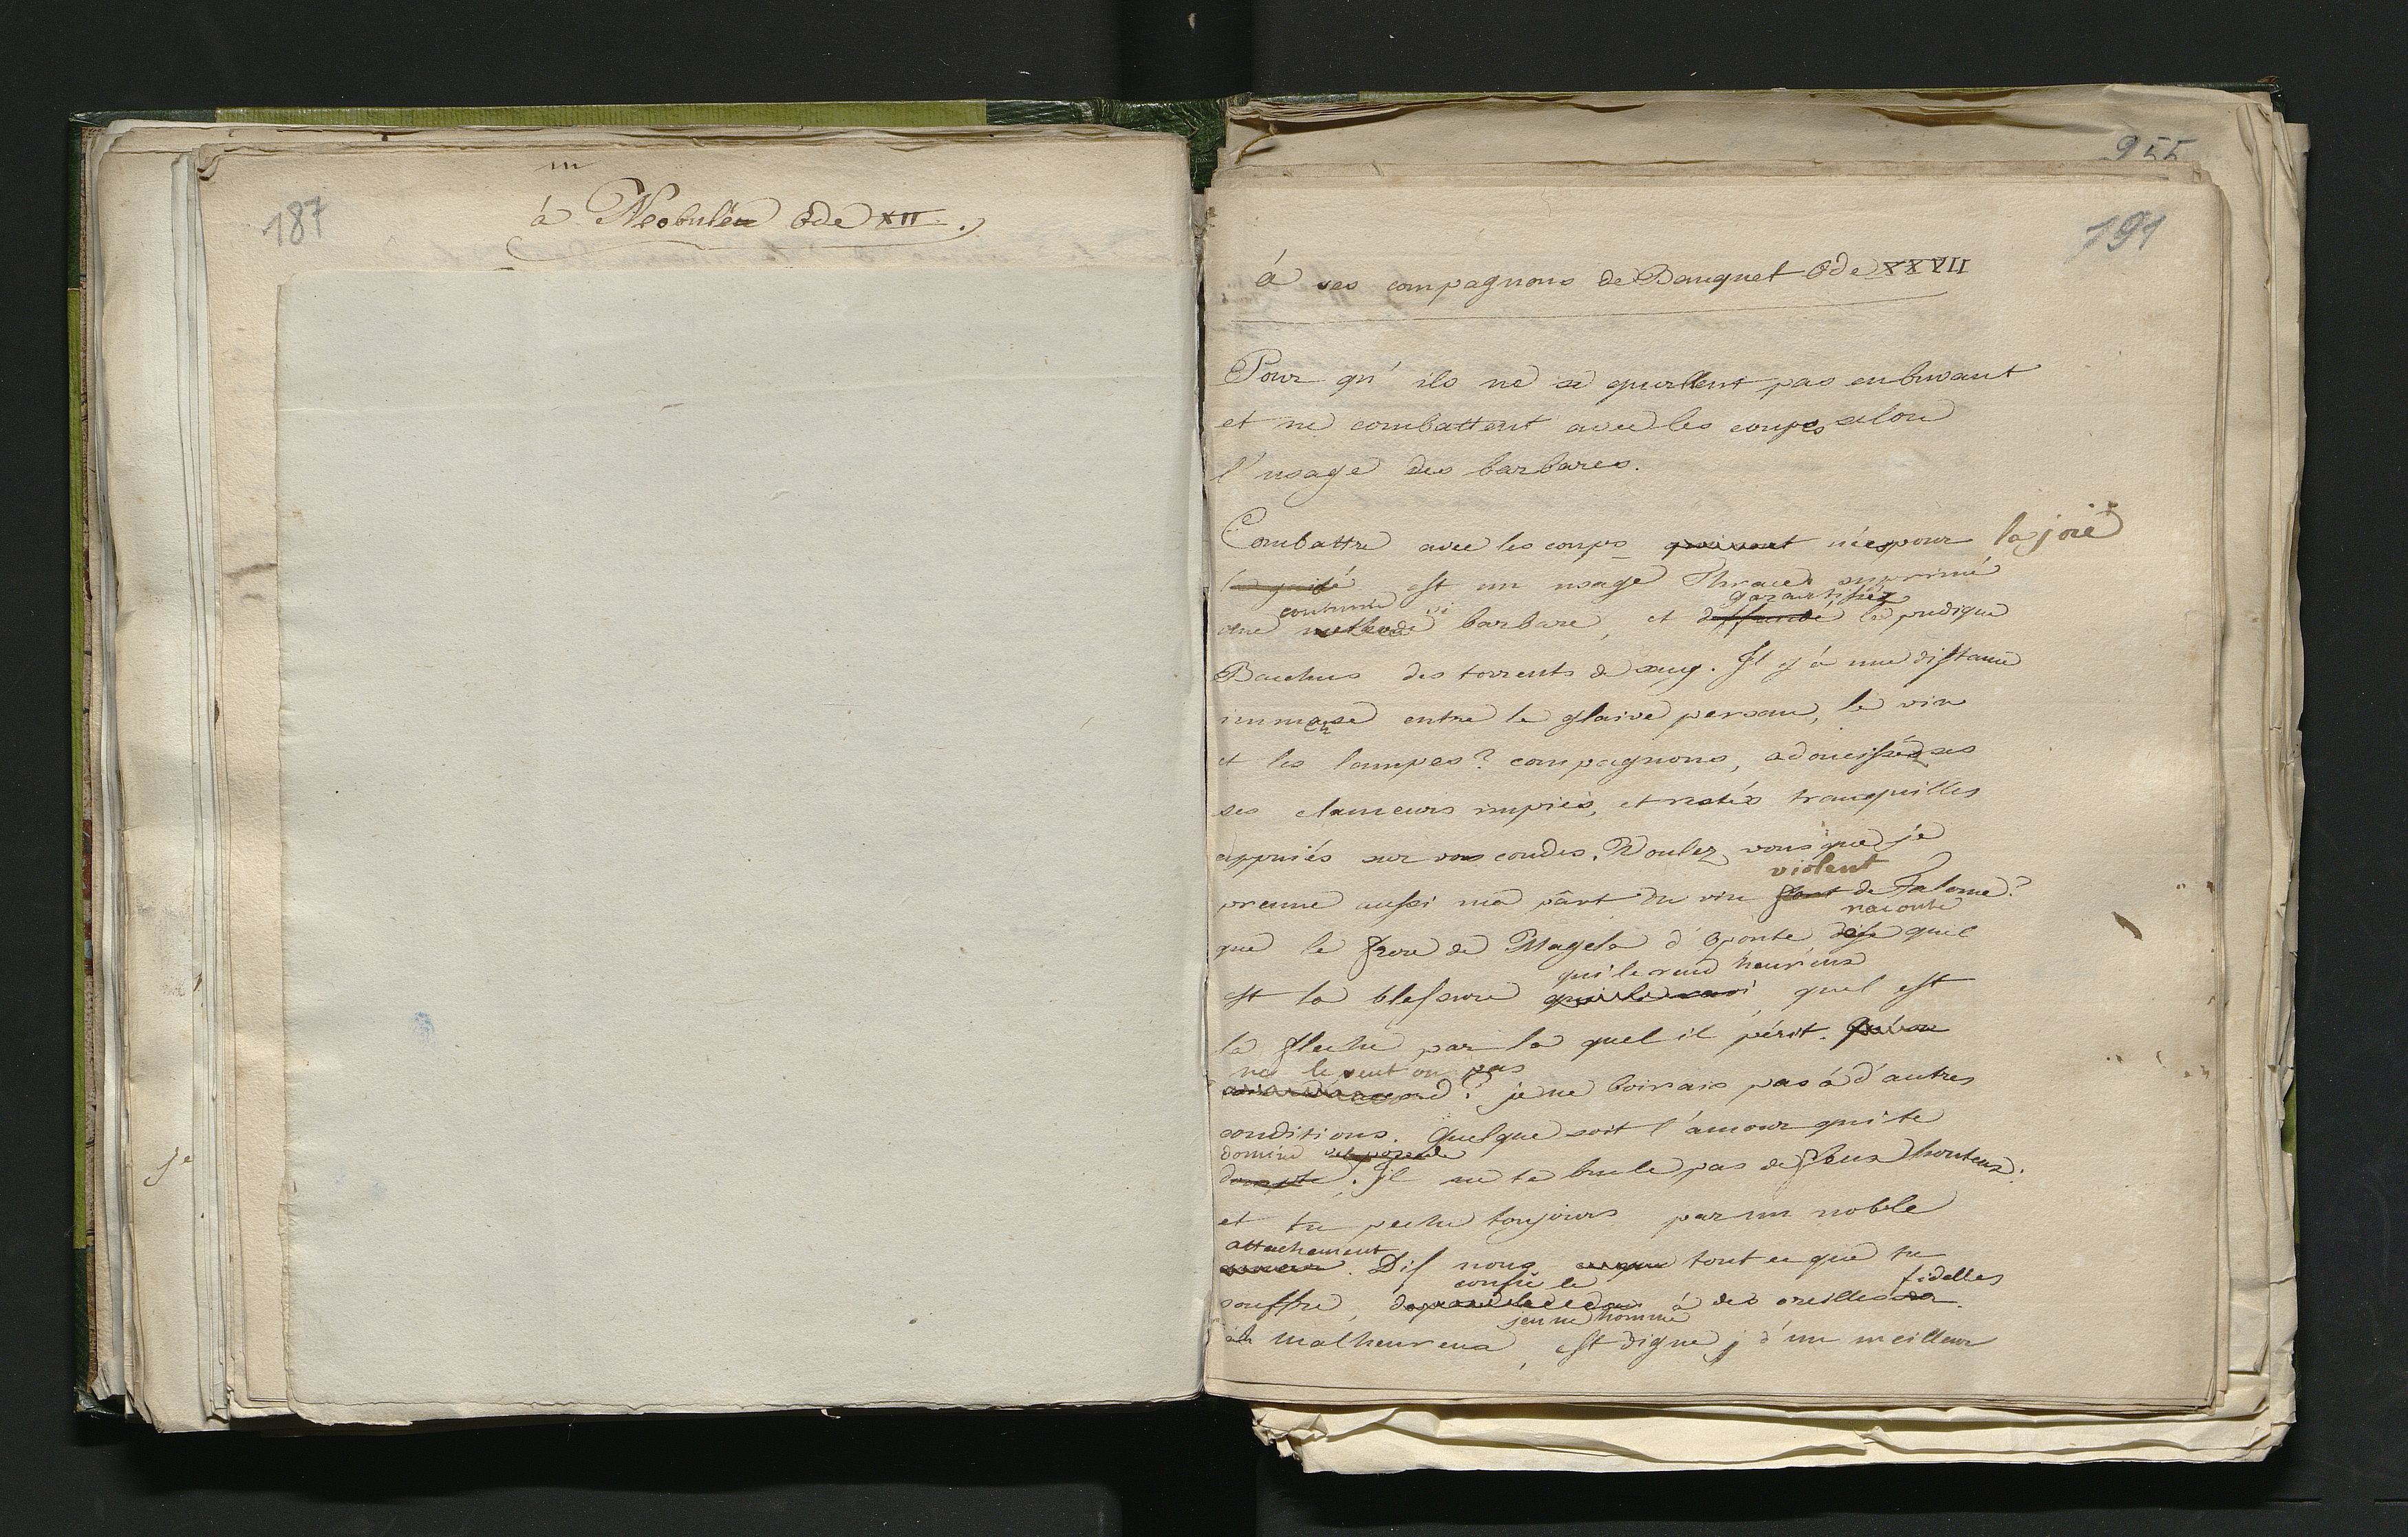 187
à Neobulée Ode XII.
955
191
à ses compagnons de Banquet Ode XXVII
Pour qu'ils ne se querellent pas en buvant
et ne combattent avec les coupes selon
l'usage des barbares.
Combattre avec les coupes nées pour la joie
est un usage Thrace suprimé
coutume garantissez
une methode si barbare, et la pudique
Bacchus des torrents de sang. Il y à une distance
immense entre le glaive persan, le vin
et les lampes? compagnons, adoucissés
ses clameurs impies, et restés tranquilles
appuiés sur vos coudes. Voulez vous que je
violent
prenne aussi ma part du vin fort de Falerne?
raconte
que le frere de Magela d'Oponte dise quel
qui le rend heureux
est la blessure quel est
la fleche par la quel il périt.
ne le veut on pas
? je ne boirais pas à d'autres
conditions. Quelque soit l'amour qui te
domine
dompte. Il ne te brule pas de feux honteux:
et tu peche toujours par un noble
attachement
. Dis nous tout ce que tu
confie le fidelles
souffre, à des oreilles
jeune homme
ah malheureux, est digne d'un meilleur
je